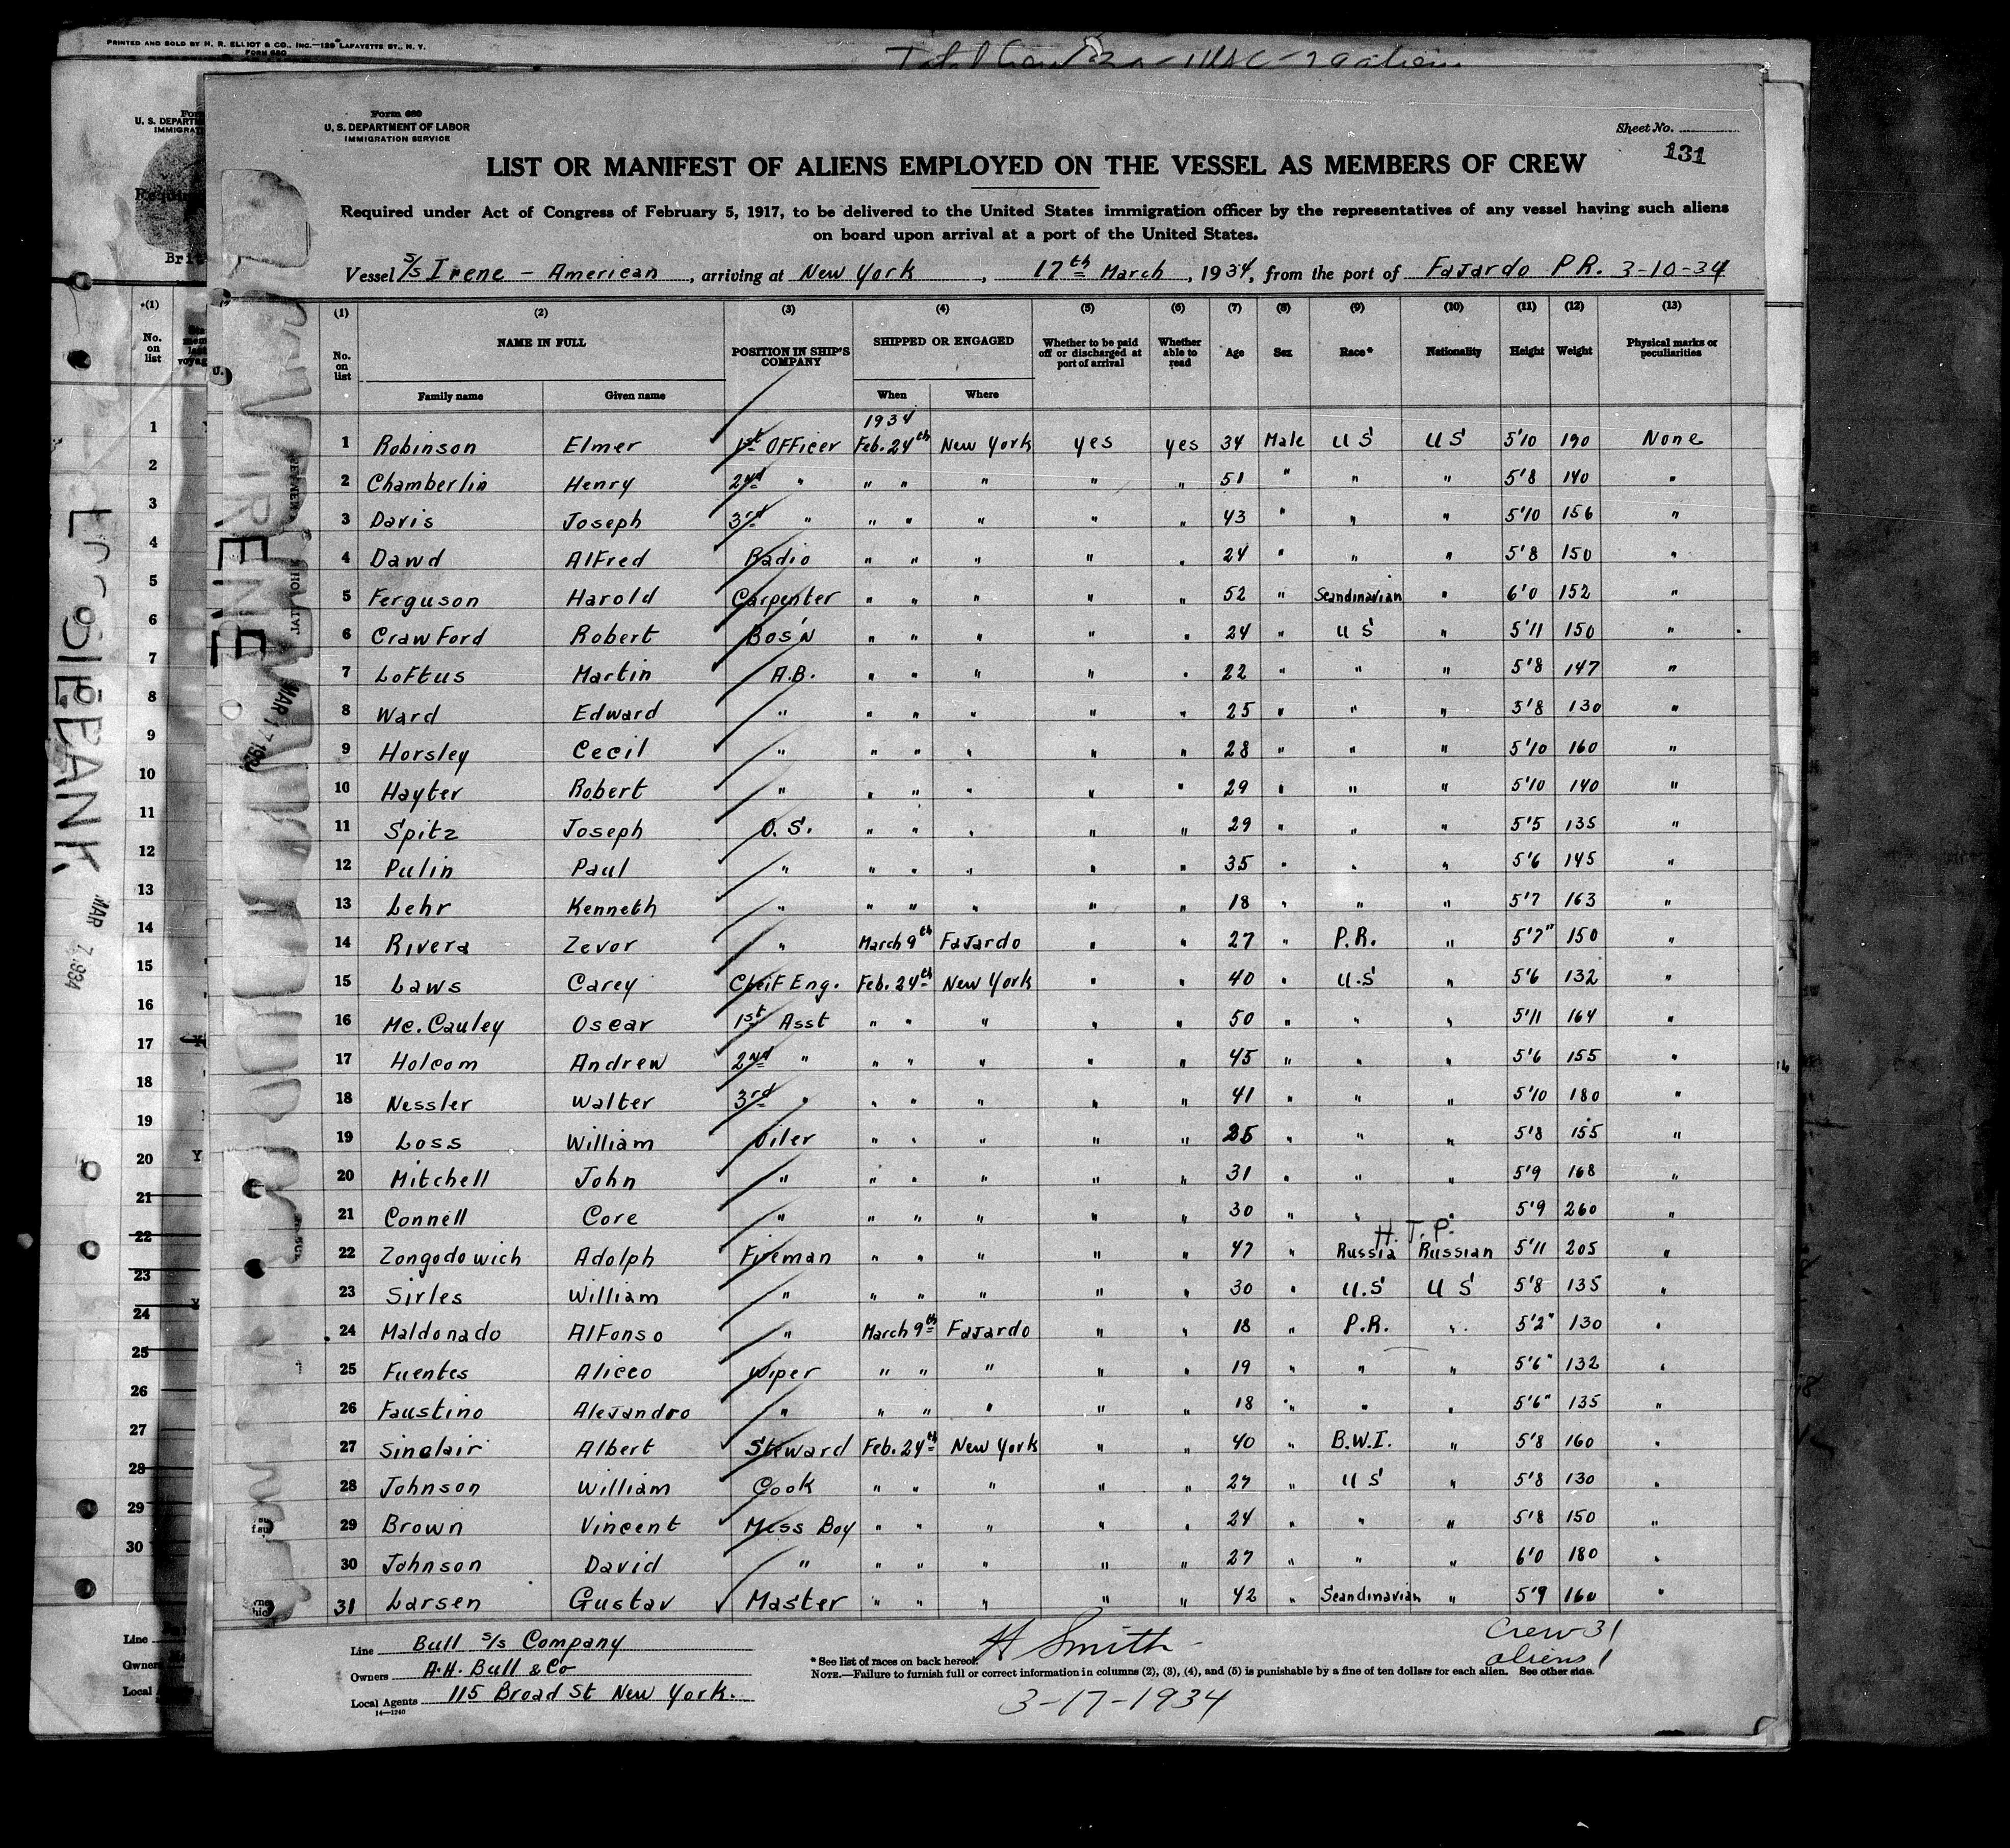 PRINTED AND SOLD BY H. R. ELLIOT & CO., INC.—129 LAFAYETTE ST., N. Y.
FORM 680
Form 680
U. S. DEPARTMENT OF LABOR
IMMIGRATION SERVICE
Sheet No.
131
LIST OR MANIFEST OF ALIENS EMPLOYED ON THE VESSEL AS MEMBERS OF CREW
Required under Act of Congress of February 5, 1917, to be delivered to the United States immigration officer by the representatives of any vessel having such aliens
on board upon arrival at a port of the United States.
Vessel S/S Irene - American, arriving at New York, 17th March, 1934, from the port of Fajardo P.R. 3-10-34
(1) (2) (3) (4) (5) (6) (7) (8) (9) (10) (11) (12) (13)
No. on list NAME IN FULL POSITION IN SHIP'S COMPANY SHIPPED OR ENGAGED Whether to be paid off or discharged at port of arrival Whether able to read Age Sex Race* Nationality Height Weight Physical marks or peculiarities
Family name Given name When Where
1934
1 Robinson Elmer 1st Officer Feb. 24th New York yes yes 34 Male U S U S 5'10 190 None
2 Chamberlin Henry 2nd " " " " " " 51 " " " 5'8 140 "
3 Davis Joseph 3rd " " " " " " 43 " " " 5'10 156 "
4 Dawd Alfred Radio " " " " " 24 " " " 5'8 150 "
5 Ferguson Harold Carpenter " " " " " 52 " Scandinavian " 6'0 152 "
6 Crawford Robert Bos'n " " " " " 24 " U S " 5'11 150 "
7 Loftus Martin A.B. " " " " " 22 " " " 5'8 147 "
8 Ward Edward " " " " " " 25 " " " 5'8 130 "
9 Horsley Cecil " " " " " " 28 " " " 5'10 160 "
10 Hayter Robert " " " " " " 29 " " " 5'10 140 "
11 Spitz Joseph O.S. " " " " " 29 " " " 5'5 135 "
12 Pulin Paul " " " " " " 35 " " " 5'6 145 "
13 Lehr Kenneth " " " " " " 18 " " " 5'7 163 "
14 Rivera Zevor " March 9th Fajardo " " 27 " P.R. " 5'7" 150 "
15 Laws Carey Cheif Eng. Feb. 24th New York " " 40 " U.S " 5'6 132 "
16 Mc.Cauley Oscar 1st Asst " " " " " 50 " " " 5'11 164 "
17 Holcom Andrew 2nd " " " " " " 45 " " " 5'6 155 "
18 Nessler Walter 3rd " " " " " " 41 " " " 5'10 180 "
19 Loss William Oiler " " " " " " " " 5'8 155 "
20 Mitchell John " " " " " " 31 " " " 5'9 168 "
21 Connell Core " " " " " " 30 " " " 5'9 260 "
H. T. P.
22 Zongodowich Adolph Fireman " " " " " 47 " Russia Russian 5'11 205 "
23 Sirles William " " " " " " 30 " U.S U S 5'8 135 "
24 Maldonado Alfonso " March 9th Fajardo " " 18 " P.R. " 5'2" 130 "
25 Fuentes Aliceo Wiper " " " " " 19 " " " 5'6" 132 "
26 Faustino Alejandro " " " " " " 18 " " " 5'6" 135 "
27 Sinclair Albert Steward Feb. 24th New York " " 40 " B.W.I. " 5'8 160 "
28 Johnson William Cook " " " " " 27 " U S " 5'8 130 "
29 Brown Vincent Mess Boy " " " " " 24 " " " 5'8 150 "
30 Johnson David " " " " " " 27 " " " 6'0 180 "
31 Larsen Gustav Master " " " " " 42 " Scandinavian " 5'9 160 "
Line Bull S/S Company
Owners A.H. Bull & Co
Local Agents 115 Broad St New York.
14—1240
H Smith
* See list of races on back hereof.
NOTE.—Failure to furnish full or correct information in columns (2), (3), (4), and (5) is punishable by a fine of ten dollars for each alien. See other side.
3-17-1934
Crew 31
aliens 1
IRENE
MAR 17 193
BANK
MAR 7 934